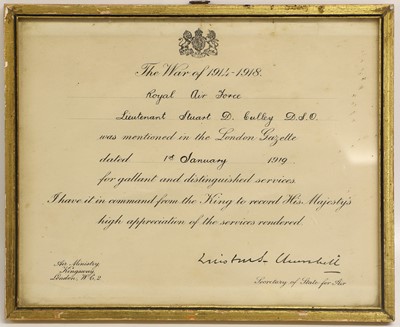 The War of 1914-1918.
Royal Air Force
Lieutenant Stuart D. Culley D.S.O.
was mentioned in the London Gazette
dated 1st January 1919
for gallant and distinguished services.
I have it in command from the King to record His Majesty's
high appreciation of the services rendered.
Winston S. Churchill
Air Ministry,
Kingsway,
London, W.C.2
Secretary of State for Air